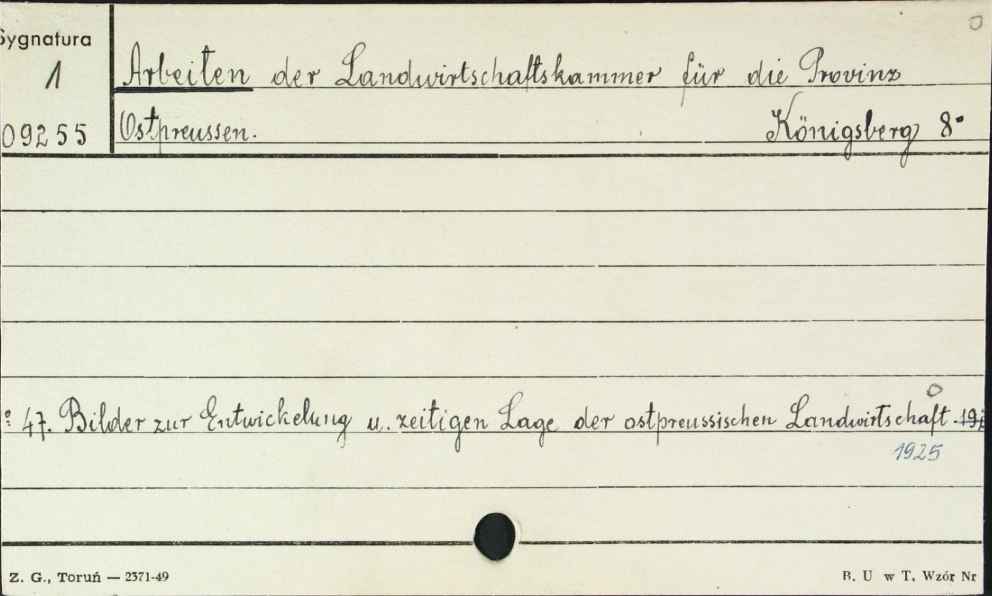 Sygnatura
1
09255
Arbeiten der Landwirtschaftskammer für die Provinz
Ostpreussen. Königsberg 8°
47. Bilder zur Entwickelung u. zeitigen Lage der ostpreussischen Landwirtschaft.
1925
Z. G., Toruń — 2371-49
B. U w T. Wzór Nr